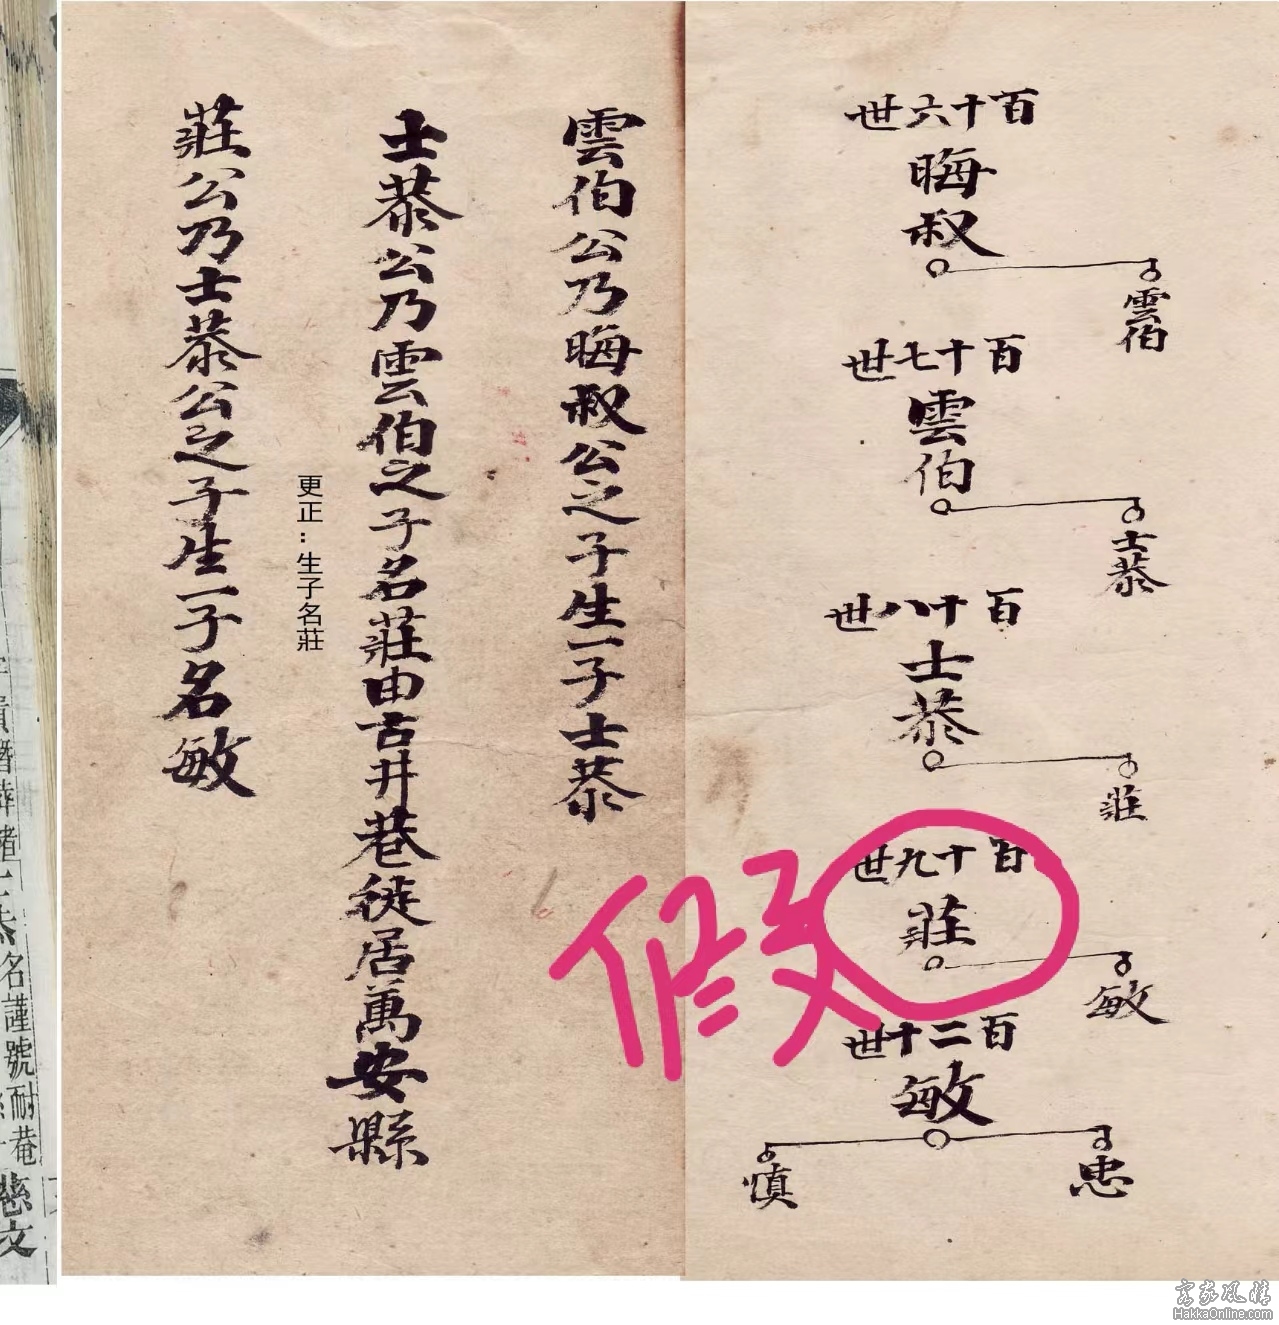 百十六世
晦叔
雲伯
百十七世
雲伯
士恭
百十八世
士恭
莊
百十九世
莊
敏
百二十世
敏
忠
慎
假
雲伯公乃晦叔公之子生一子士恭
士恭公乃雲伯之子名莊由古井巷徙居萬安縣
更正：生子名莊
莊公乃士恭公之子生一子名敏
名謹號耐菴
慈文
客家風情
HakkaOnline.com